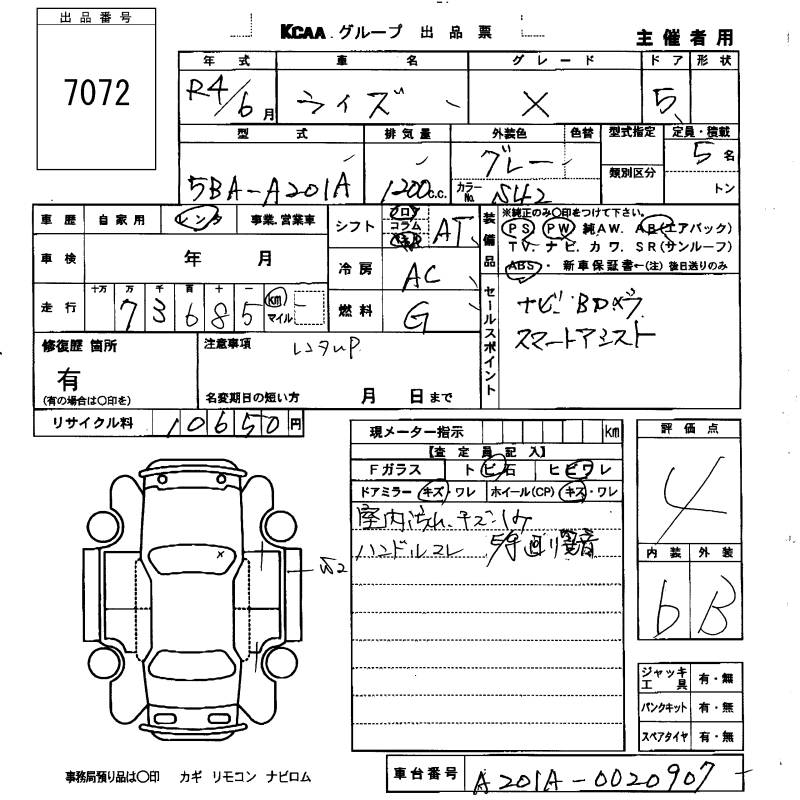 出品番号
7072
KCAA.グループ 出品票
主催者用
年式 車名 グレード ドア 形状
R4/6月 ライズ X 5
型式 排気量 外装色 色替 型式指定 定員・積載
5BA-A201A 1200c.c. グレー カラーNo. S42 類別区分 5名
トン
車歴 自家用 レンタ 事業.営業車
車検 年 月
走行 十万 万 千 百 十 一
73685 km マイル
シフト フロア コラム AT
冷房 AC
燃料 G
装備品 ※純正のみ〇印をつけて下さい。
PS PW 純AW. AB(エアバック)
TV. ナビ. カワ. SR(サンルーフ)
ABS・ 新車保証書←(注)後日送りのみ
セールスポイント
ナビ BDカメラ
スマートアシスト
修復歴 箇所
有
(有の場合は〇印を)
注意事項
レンタUP
名変期日の短い方 月 日まで
リサイクル料 10650円
現メーター指示 km
【査定員記入】
Fガラス トビ石 ヒビワレ
ドアミラー キズ・ワレ ホイール(CP) キズ・ワレ
室内汚れ、キズ
ハンドルスレ
評価点
4
内装 外装
b B
ジャッキ工具 有・無
パンクキット 有・無
スペアタイヤ 有・無
事務局預り品は〇印 カギ リモコン ナビロム
車台番号 A201A-0020907